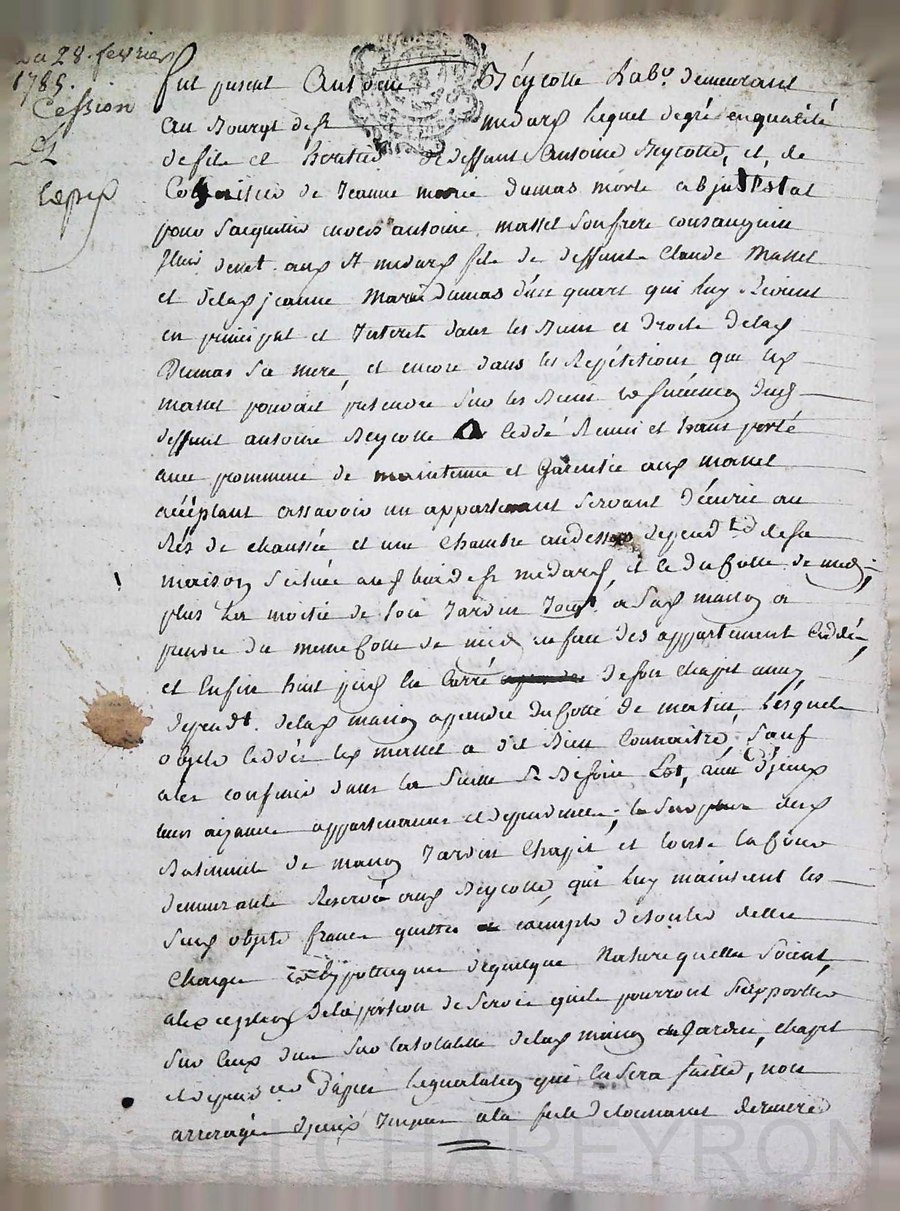 Du 28 fevrier
1785.
Cession
fut present Antoine Reycolle Lab.r demeurant
au Bourgt de st medard lequel degré en qualité
de fils et heritier de deffunt Antoine Reycolle, et, de
de Jeanne marie Dumas morte ab jntestat
pour sacquitter envers antoine massel son frere consanguin
aud st medard fils de deffunts Claude Massel
et delad jeanne Marie Dumas d'un quart qui luy Revient
en principal et Interets dans les Biens et droits delad
Dumas sa mere, et encore dans les Repétitions que led
massel pouvoit pretendre sur les Biens dud
deffunt antoine Reycolle a Ceddé Remis et transporté
avec promesse de maintenue et Garentie aud massel
accéptant assavoir un appartement servant décurie au
Rés de chaussée et une Chambre audessus depend.te de sa
maison scituée aud lieu de st medard, et le du Cotté de midy,
plus La moitié de son Jardin Joignt a sad maison a
prendre du meme Cotté de midy en face des appartement Ceddés,
et Enfin huit pieds en Carré de son chapit aussy
depend.t delad maison aprendre du Cotté de matin, Lesquels
objets ceddés led massel a dit Bien Connaitre, sauf
ales confiner dans la suitte si Besoin Est, avec d'jceux
leurs aizances appartenances et dependances; le surplus desd
Batiment de maison Jardin Chapit et toute la Cour
demeurants Reservés aud Reycolle, qui luy maintient les
susd objets francs quittes et exempts de toutes dettes
Charges et hÿpotheques de quelque Nature quelles soient,
alexception delaportion de servis quils pourront supporter
sur ceux dus sur latotalitté delad maison Jardin, chapit
et d'après legualation qui en sera faitte, non
arreragés d'jceux Jusques ala feste de toussaint derniere
Pascal CHAREYRON